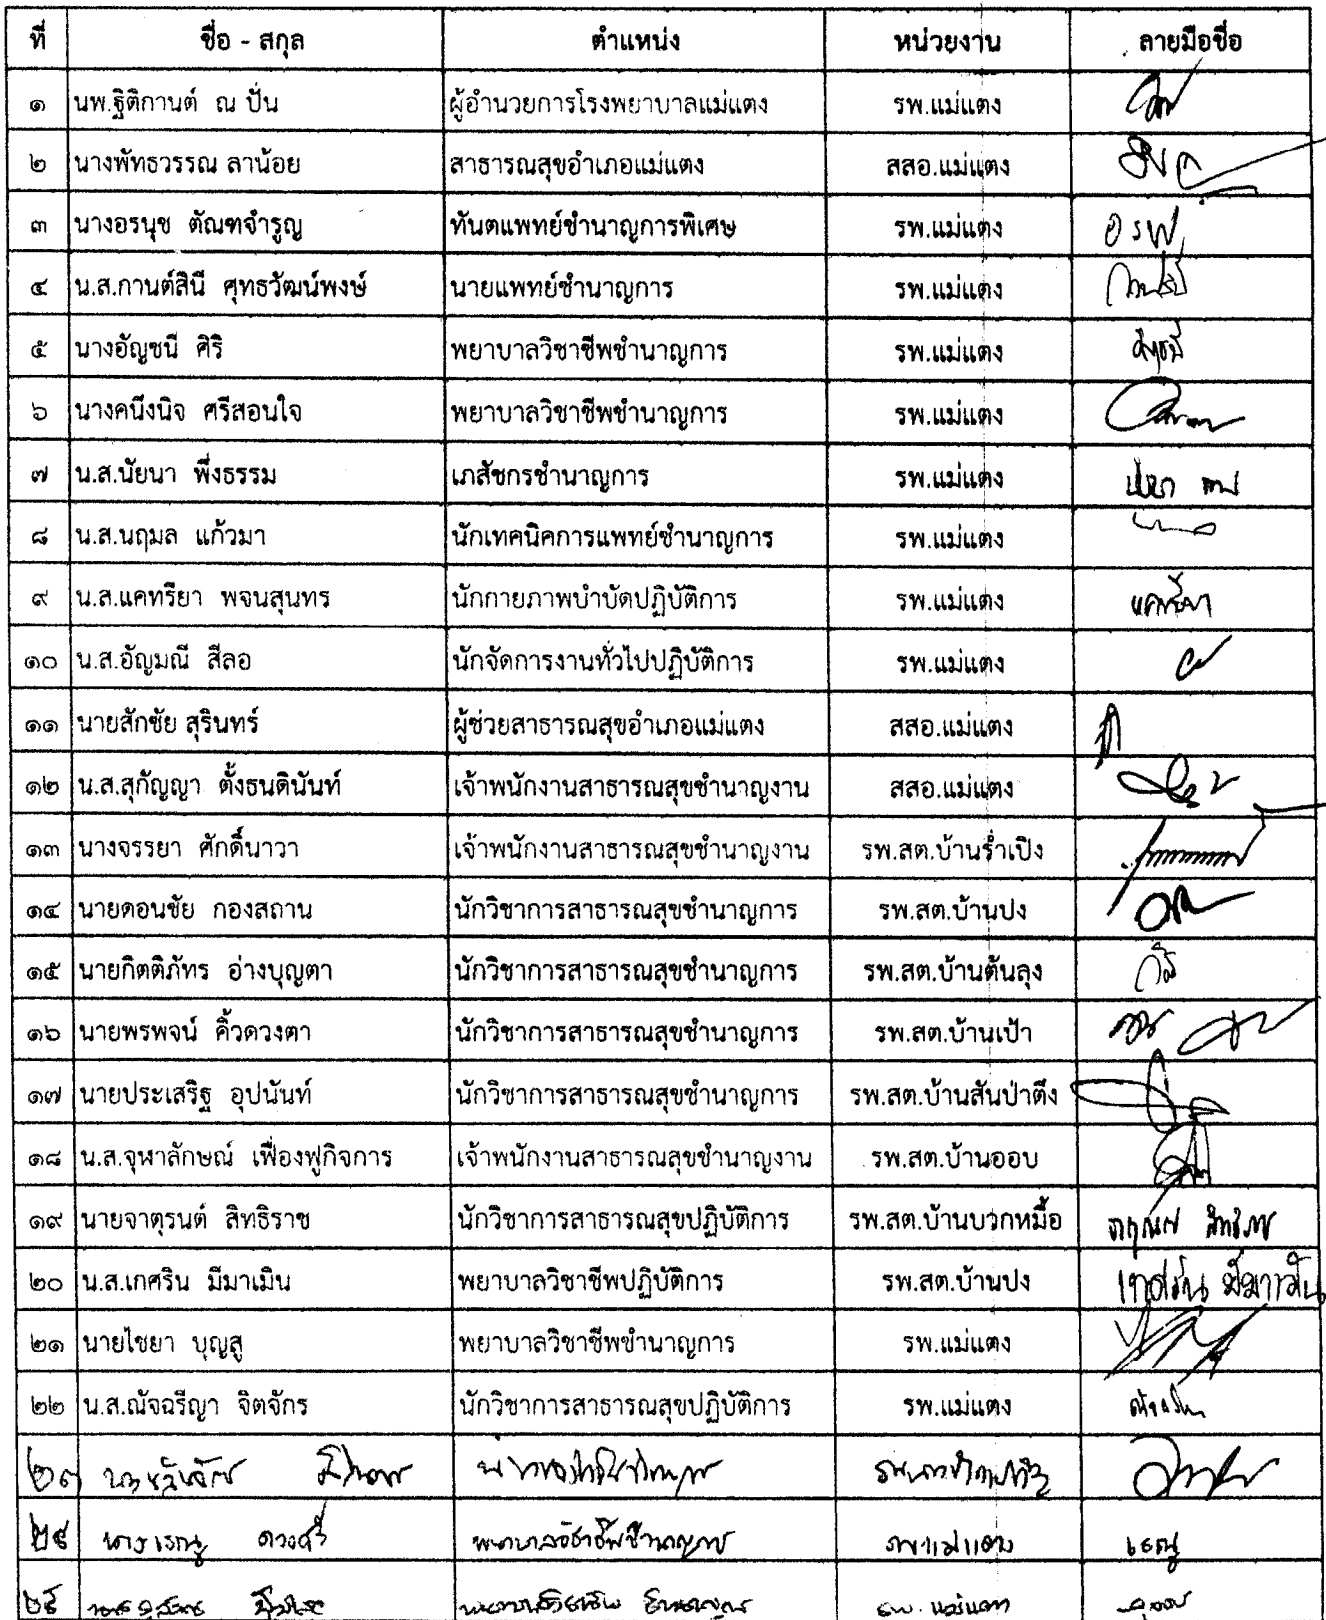 ที่ ชื่อ - สกุล ตำแหน่ง หน่วยงาน ลายมือชื่อ
๑ นพ.ฐิติกานต์ ณ ปั่น ผู้อำนวยการโรงพยาบาลแม่แตง รพ.แม่แตง
๒ นางพัทธวรรณ ลาน้อย สาธารณสุขอำเภอแม่แตง สสอ.แม่แตง
๓ นางอรนุช ตัณฑจำรูญ ทันตแพทย์ชำนาญการพิเศษ รพ.แม่แตง
๔ น.ส.กานต์สินี ศุทธวัฒน์พงษ์ นายแพทย์ชำนาญการ รพ.แม่แตง
๕ นางอัญชนี ศิริ พยาบาลวิชาชีพชำนาญการ รพ.แม่แตง
๖ นางคนึงนิจ ศรีสอนใจ พยาบาลวิชาชีพชำนาญการ รพ.แม่แตง
๗ น.ส.นัยนา พึ่งธรรม เภสัชกรชำนาญการ รพ.แม่แตง
๘ น.ส.นฤมล แก้วมา นักเทคนิคการแพทย์ชำนาญการ รพ.แม่แตง
๙ น.ส.แคทรียา พจนสุนทร นักกายภาพบำบัดปฏิบัติการ รพ.แม่แตง แคทรียา
๑๐ น.ส.อัญมณี สีลอ นักจัดการงานทั่วไปปฏิบัติการ รพ.แม่แตง
๑๑ นายสักชัย สุรินทร์ ผู้ช่วยสาธารณสุขอำเภอแม่แตง สสอ.แม่แตง
๑๒ น.ส.สุกัญญา ตั้งธนดินันท์ เจ้าพนักงานสาธารณสุขชำนาญงาน สสอ.แม่แตง
๑๓ นางจรรยา ศักดิ์นาวา เจ้าพนักงานสาธารณสุขชำนาญงาน รพ.สต.บ้านร่ำเปิง
๑๔ นายดอนชัย กองสถาน นักวิชาการสาธารณสุขชำนาญการ รพ.สต.บ้านปง
๑๕ นายกิตติภัทร อ่างบุญตา นักวิชาการสาธารณสุขชำนาญการ รพ.สต.บ้านต้นลุง
๑๖ นายพรพจน์ คิ้วดวงตา นักวิชาการสาธารณสุขชำนาญการ รพ.สต.บ้านเป้า
๑๗ นายประเสริฐ อุปนันท์ นักวิชาการสาธารณสุขชำนาญการ รพ.สต.บ้านสันป่าตึง
๑๘ น.ส.จุฬาลักษณ์ เฟื่องฟูกิจการ เจ้าพนักงานสาธารณสุขชำนาญงาน รพ.สต.บ้านออบ
๑๙ นายจาตุรนต์ สิทธิราช นักวิชาการสาธารณสุขปฏิบัติการ รพ.สต.บ้านบวกหมื้อ จาตุรนต์ สิทธิราช
๒๐ น.ส.เกศริน มีมาเมิน พยาบาลวิชาชีพปฏิบัติการ รพ.สต.บ้านปง เกศริน มีมาเมิน
๒๑ นายไชยา บุญสู พยาบาลวิชาชีพชำนาญการ รพ.แม่แตง
๒๒ น.ส.ณัจฉรีญา จิตจักร นักวิชาการสาธารณสุขปฏิบัติการ รพ.แม่แตง
๒๓
๒๔ นางเรณู ดวงศรี พยาบาลวิชาชีพชำนาญการ รพ.แม่แตง เรณู
๒๕ พยาบาลวิชาชีพ ชำนาญการ รพ. แม่แตง